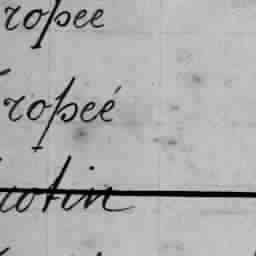 ropee
ropeé
cotin